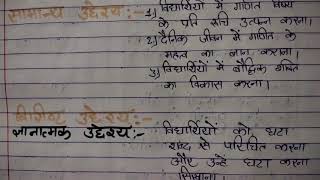 सामान्य उद्देश्य:- 1) विद्यार्थियों में गणित विषय
के प्रति रुचि उत्पन्न करना।
2) दैनिक जीवन में गणित के
महत्व का ज्ञान कराना।
3) विद्यार्थियों में बौद्धिक शक्ति
का विकास करना।
विशिष्ट उद्देश्य:-
ज्ञानात्मक उद्देश्य:- विद्यार्थियों को घटा
शब्द से परिचित करना
और उन्हें घटा करना
सिखाना।